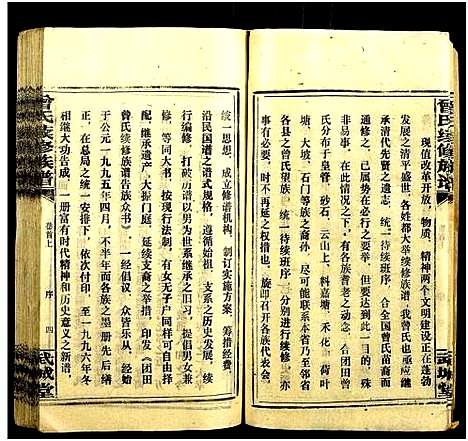 曾氏续修族谱
现值改革开放，物质、精神两个文明建设正在蓬勃
发展之清平盛世，各姓都大举续修族谱，我曾氏也应秉
承清代先贤之遗志，统一待续班序，合到全国曾氏苗裔而
通修之，已具成势在必行之要举。但要达此一目的，殊
非易事，在正式颁修之前，有各族首老之动议，在团田曾
氏分布于皇管、砂石、云山上、料嘉塘、禾花、荷叶
塘、大石、坡门等族裔，尽可能联系本省乃至邻省
各县之曾氏望族，统一待续班序，分别进行续修，
事有必要，时不再延之权措也。旋即召开各族代表会，
统一思想，成立修谱机构，制订实施方案，筹措经费，
沿民国谱之谱式规格，遵循始祖、支系之历史发展，进
行编修，打破历谱以男为世系继承之旧习，提倡男女兼
修，等同大书，按现行法制，有女无子户同样可自由择
配，继承遗产，大振门庭，延续支裔之举措，印发《团田
曾氏续修族谱告族人书》，一经倡议，众皆乐从，曾经
于公元一九九五年四月，不半年而各族之墨册先后缮
正，在总局之统一安排下，依次付印，至一九九六年冬
相继大功告成，一册富有时代精神和历史意义之新谱
曾氏续修族谱
卷首上
序
四
武城堂
武城堂